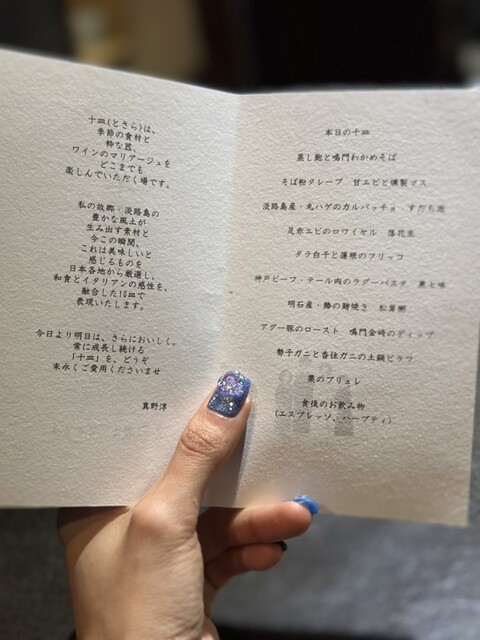 十皿(とさら)は、
季節の食材と
粋な器、
ワインのマリアージュを
どこまでも
楽しんでいただく場です。
私の故郷・淡路島の
豊かな風土が
生み出す素材と
今この瞬間、
これは美味しいと
感じるものを
日本各地から厳選し、
和食とイタリアンの感性を、
融合した10皿で
表現いたします。
今日より明日は、さらにおいしく。
常に成長し続ける
「十皿」を、どうぞ
末永くご愛用くださいませ
真野淳
本日の十皿
蒸し鮑と鳴門わかめそば
そば粉クレープ 甘エビと燻製マス
淡路島産・丸ハゲのカルパッチョ すだち
足赤エビのロワイヤル 落花生
タラ白子と蓮根のフリッコ
神戸ビーフ・テール肉のラグーパスタ 黒七味
明石産・鰆の麹焼き 松茸粥
アグー豚のロースト 鳴門金時のディップ
勢子ガニと香住ガニの土鍋ピラフ
栗のブリュレ
食後のお飲み物
(エスプレッソ、ハーブティ)